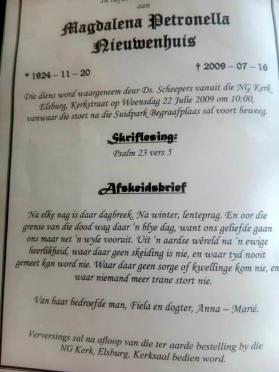 aan
Magdalena Petronella
Nieuwenhuis
* 1924 – 11 – 20
† 2009 – 07 – 16
Die diens word waargeneem deur Ds. Scheepers vanuit die NG Kerk
Elsburg, Kerkstraat op Woensdag 22 Julie 2009 om 10:00,
vanwaar die stoet na die Suidpark Begraafplaas sal voort beweeg.
Skriflesing:
Psalm 23 vers 5
Afskeidsbrief
Na elke nag is daar dagbreek. Na winter, lenteprag. En oor die
grense van die dood wag daar 'n blye dag, want ons geliefde gaan
ons maar net 'n wyle vooruit. Uit 'n aardse wêreld na 'n ewige
heerlikheid, waar daar geen skeiding is nie, en waar tyd nooit
gemeet kan word nie. Waar daar geen sorge of kwellinge kom nie, en
waar niemand meer trane stort nie.
Van haar bedroefde man, Fiela en dogter, Anna – Marié.
Verversings sal na afloop van die ter aarde bestelling by die
NG Kerk, Elsburg, Kerksaal bedien word.